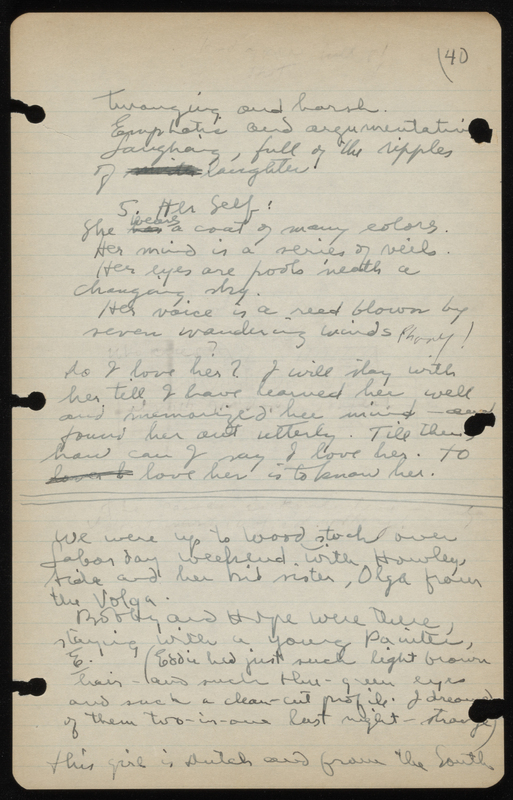 (40
twanging and harsh.
Emphatic and argumentative
Laughing, full of the ripples
of laughter.
5. Her Self:
She wears a coat of many colors.
Her mind is a series of veils.
Her eyes are pools 'neath a
changing sky.
Her voice is a reed blown by
seven wandering winds Phooey!
?
do I love her? I will stay with
her till I have learned her well
and memorized her mind - and
found her out utterly. Till then,
how can I say I love her. To
love her is to know her.
We were up to Woodstock over
Labor day weekend with Howley,
Hida and her kid sister, Olga from
the Volga.
Bobby and Hope were there,
staying with a young Painter,
E. (Eddie had just such light brown
hair - and such blue-green eyes
and such a clean-cut profile. I dreamed
of them two-in-one last night - strange)
this girl is Dutch and from the South